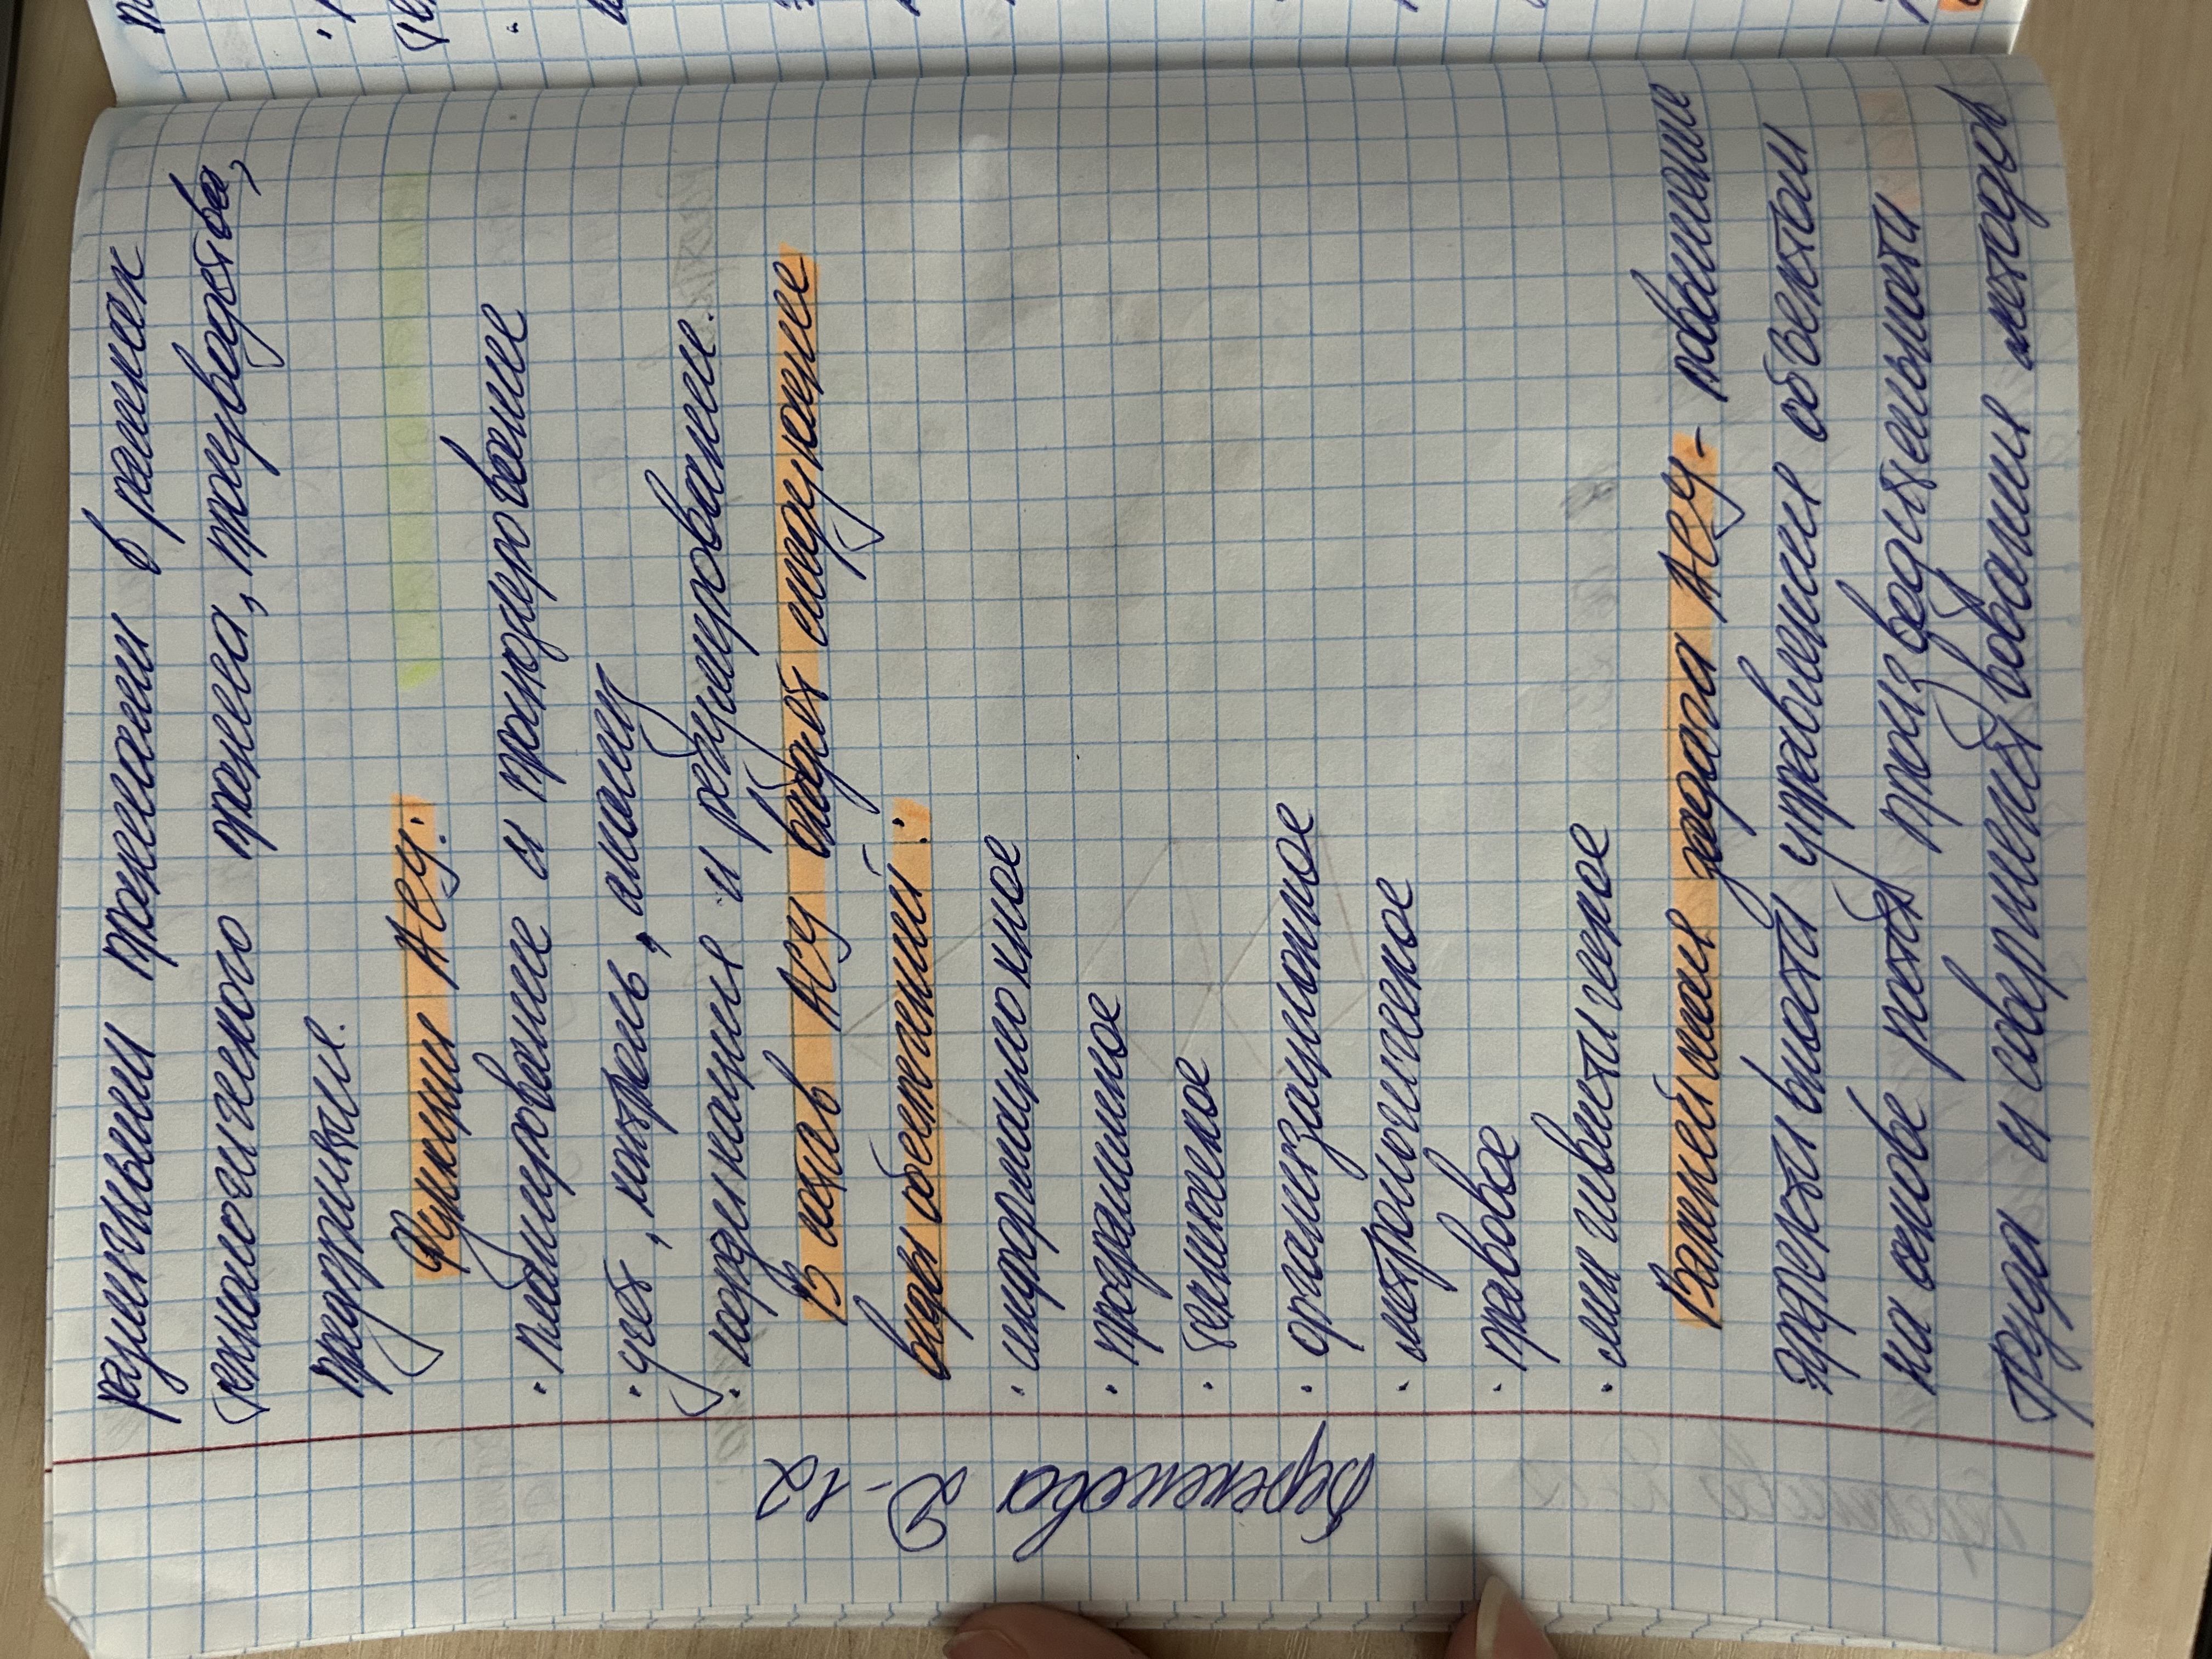 различными процессами в рамках
технологического процесса, производства,
предприятия.
Функции АСУ:
· планирование и прогнозирование
· учет, контроль, анализ
· координация и регулирование.
В состав АСУ входят следующие
виды обеспечений:
· информационное
· программное
· техническое
· организационное
· метрологическое
· правовое
· лингвистическое
Важнейшая задача АСУ - повышение
эффективности управления объектом
на основе роста производительности
труда и совершенствования методов
2-12